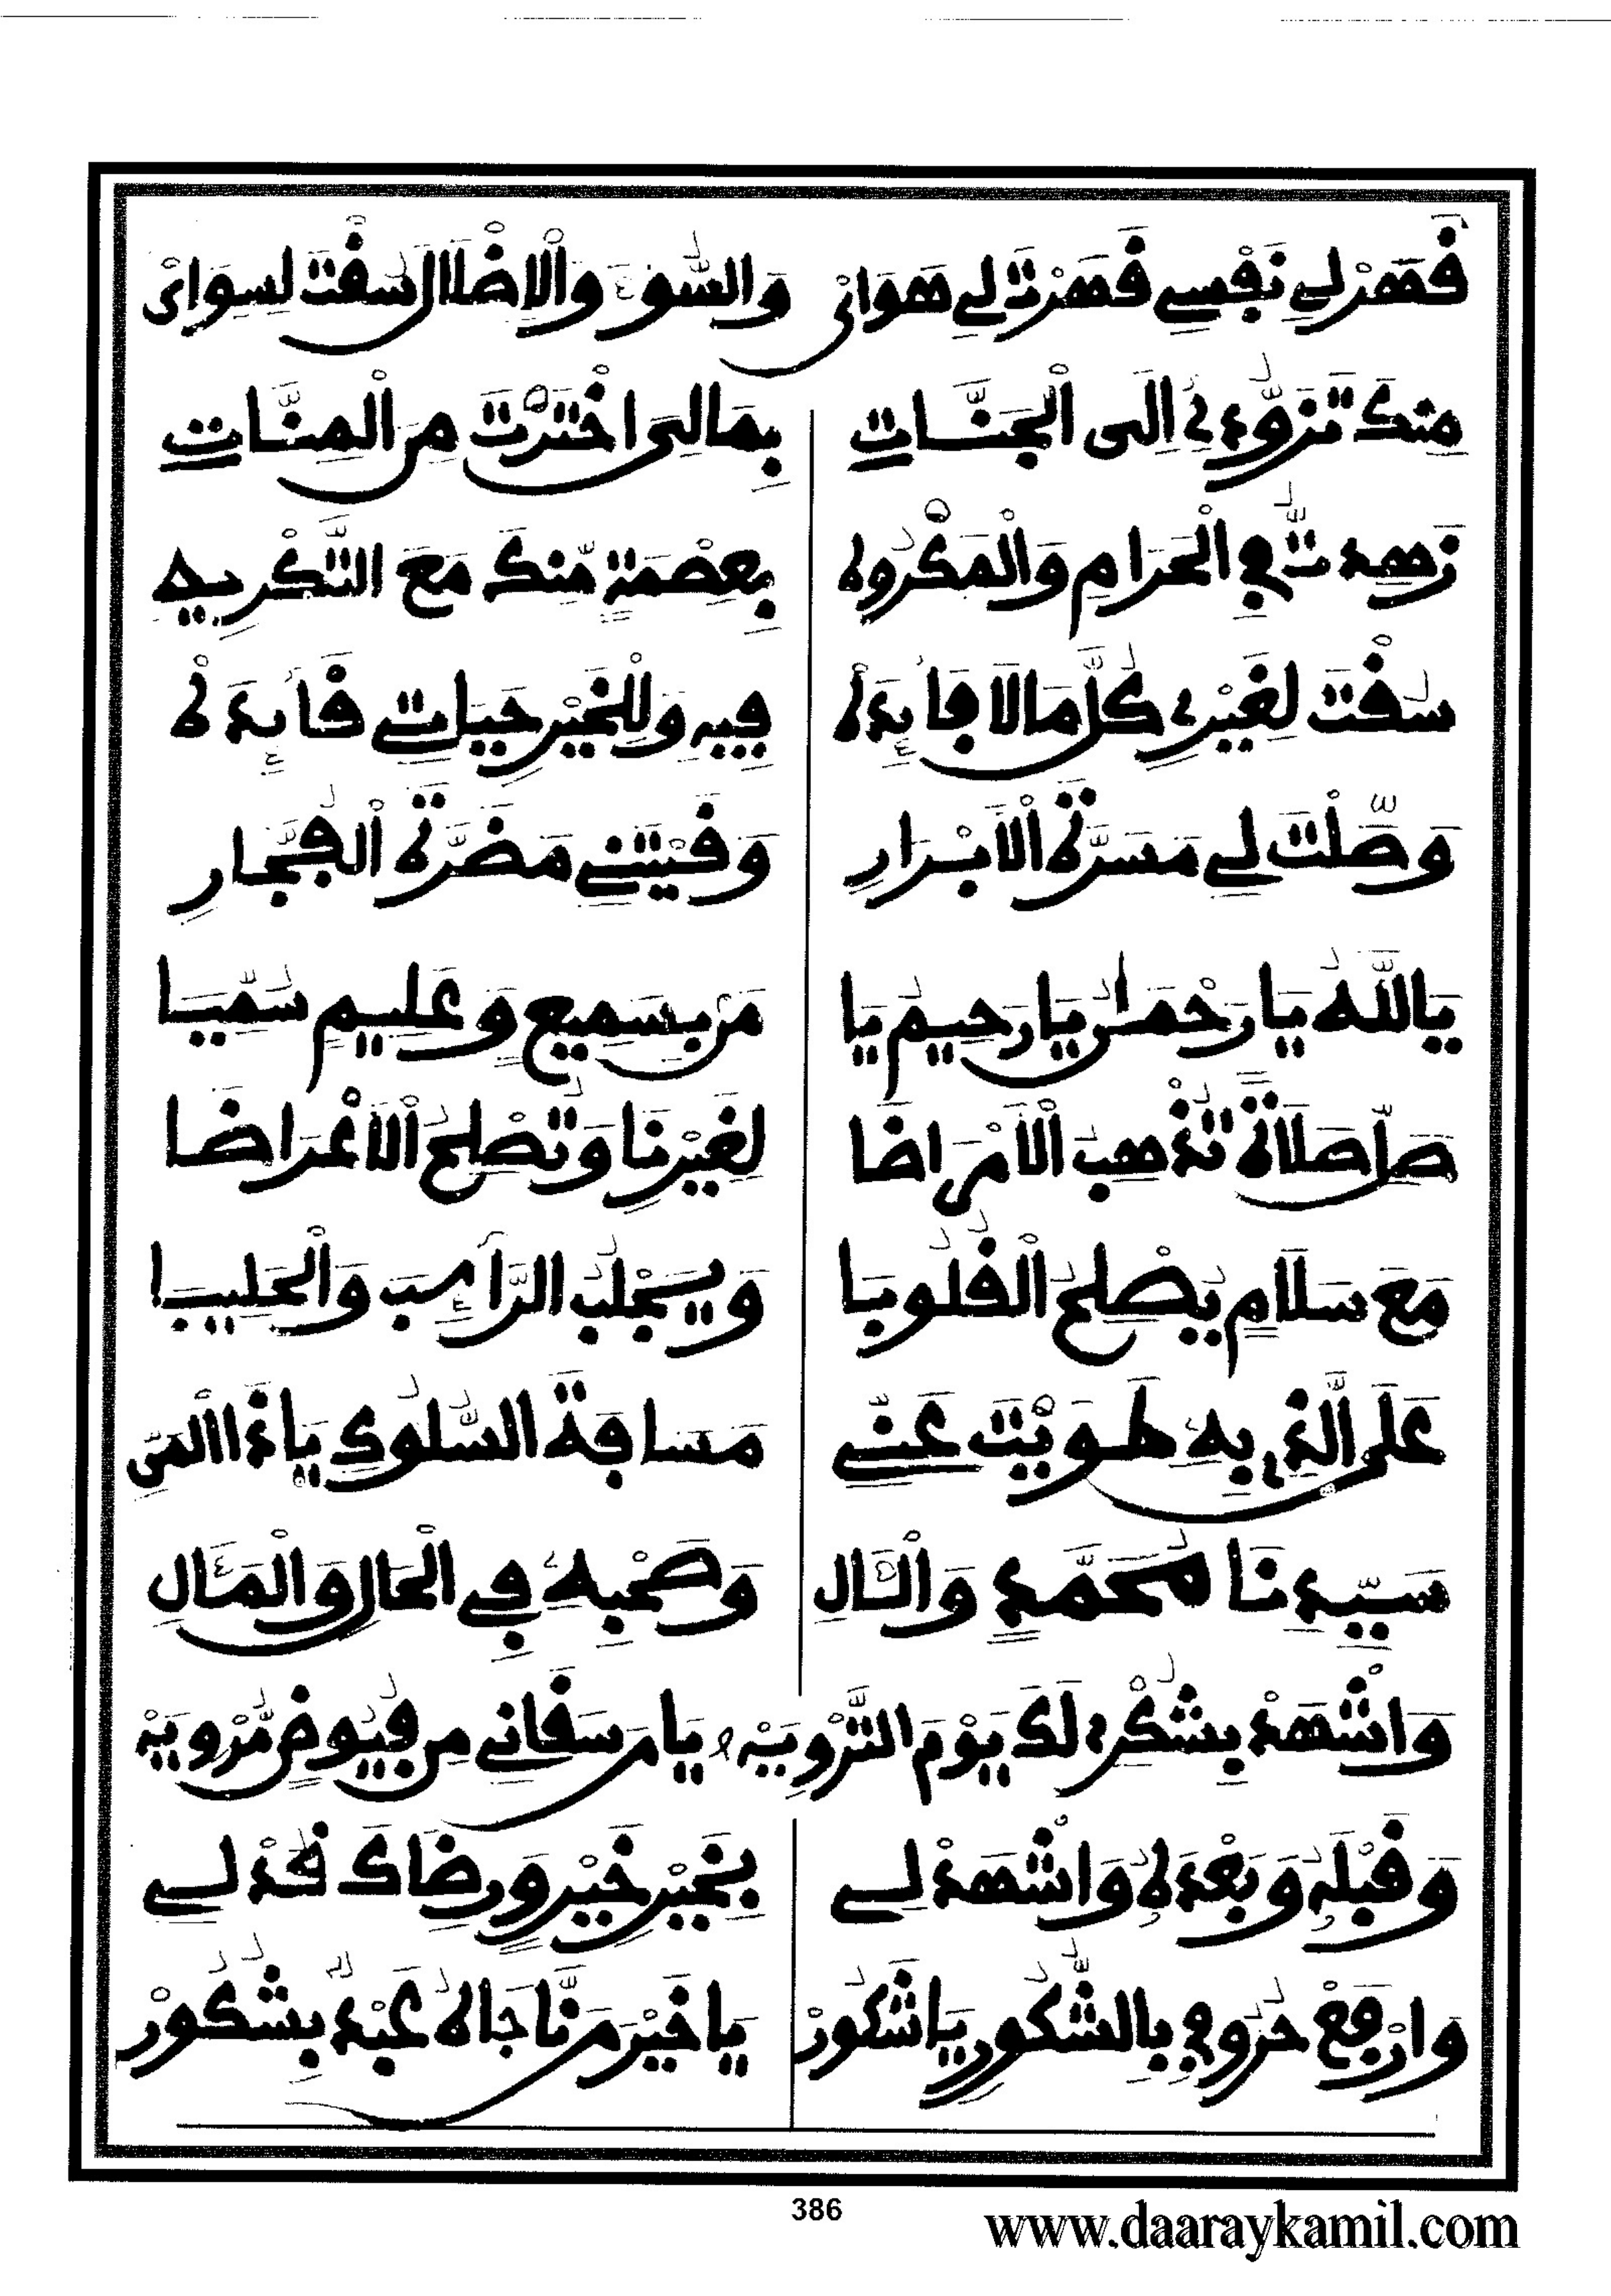 قَهَرْ لِي نَفْسِي قَهَرْتَ لِي هَوَائْ وَالسُّوءَ وَالْإِضْلَالَ سُقْتَ لِسِوَائْ
مِنْكَ تَزَوُّدِي إِلَى الْجَنَّاتِ بِمَا لِيَ اخْتَرْتَ مِنَ الْمِنَّاتِ
زَهَّدْتَنِي فِي الْحَرَامِ وَالْمَكْرُوهِ بِعِصْمَةٍ مِّنْكَ مَعَ التَّكْرِيهِ
سُقْتَ لِغَيْرِي كُلَّ مَا لَا فَائِدَهْ فِيهِ وَلِلْخَيْرِ حَيَاتِي قَائِدَهْ
وَصَّلْتَ لِي مَسَرَّةَ الْأَبْرَارِ وَقَيْتَنِي مَضَرَّةَ الْفُجَّارِ
يَا اللَّهُ يَا رَحْمَٰنُ يَا رَحِيمُ يَا مَنْ بِسَمِيعٍ وَعَلِيمٍ سُمِّيَا
صَلِّ صَلَاةً تُذْهِبُ الْأَمْرَاضَا لِغَيْرِنَا وَتُصْلِحُ الْأَغْرَاضَا
مَعَ سَلَامٍ يُصْلِحُ الْقُلُوبَا وَيَجْلُبُ الرَّائِبَ وَالْحَلِيبَا
عَلَى الَّذِي بِهِ طَوَيْتَ عَنِّي مَسَافَةَ السُّلُوكِ يَا ذَا الْمَنِّ
سَيِّدِنَا مُحَمَّدٍ وَالْآلِ وَصَحْبِهِ فِي الْحَالِ وَالْمَآلِ
وَاشْهَدْ بِشُكْرِي لَكَ يَوْمَ التَّرْوِيَهْ يَا مَنْ سَقَانِي مِنْ فُيُوضٍ مُّرْوِيَهْ
وَقَبْلَهُ وَبَعْدَهُ وَاشْهَدْ لِي بِخَيْرِ خَيْرٍ وَرِضَاكَ قُدْ لِي
وَارْفَعْ حُرُوفِي بِالشُّكُورِ يَا شَكُورْ يَا خَيْرَ مَنْ نَاجَاهُ عَبْدٌ بِشُكُورْ
386
www.daaraykamil.com